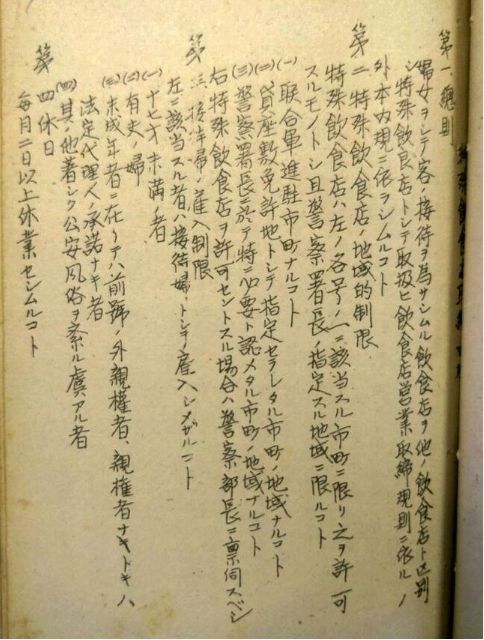 第一、總則
婦女ヲシテ客ノ接待ヲ為サシムル飲食店ヲ他ノ飲食店ト区別
シ特殊飲食店トシテ取扱ヒ飲食店営業取締規則ニ依ルノ
外本内規ニ依ラシムルコト
第二 特殊飲食店ノ地域的制限
特殊飲食店ハ左ノ各号ノ一ニ該当スル市町ニ限リ之ヲ許可
スルモノトシ且警察署長ノ指定スル地域ニ限ルコト
(一) 联合軍ノ進駐市町ナルコト
(二) 貸座敷免許地トシテ指定セラレタル市町ノ地域ナルコト
(三) 警察署長ニ於テ特ニ必要ト認メタル市町ノ地域ナルコト
右特殊飲食店ヲ許可セントスル場合ハ警察部長ニ禀伺スベシ
第三、接待婦ノ雇入制限
左ニ該当スル者ハ接待婦トシテ雇入シメザルコト
(一) 十七才未満ノ者
(二) 有夫ノ婦
(三) 未成年者ニ在リテハ前號ノ外親権者、親権者ナキトキハ
法定代理人ノ承諾ナキ者
(四) 其ノ他著シク公安風俗ヲ紊ル虞アル者
第四休日
毎月二日以上休業セシムルコト